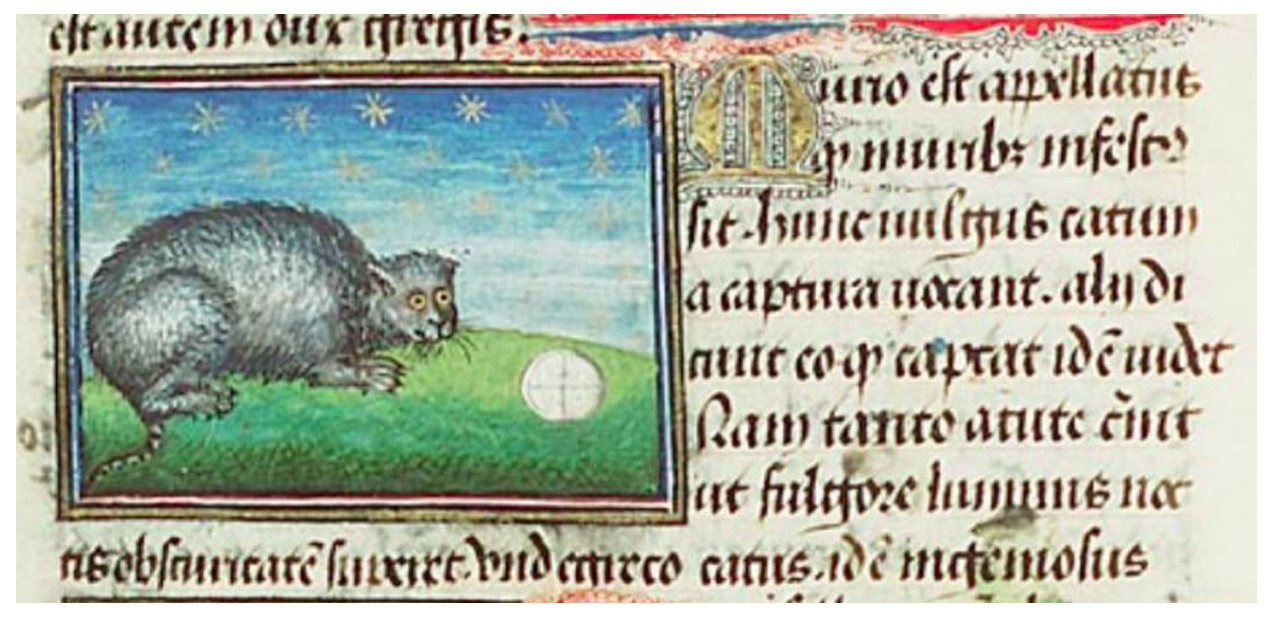 est autem dux gregis.
Murio est appellatus
qꝫ muribꝫ infestꝰ
sit. hunc uulgus catum
a captura uocant. alij di
cunt eo qꝫ captat id ē uidet
Nam tanto acute c̄nit
ut fulgore luminis noc
tis obscuritatē suꝑet. Vnde a greco catus. id ē ingeniosus